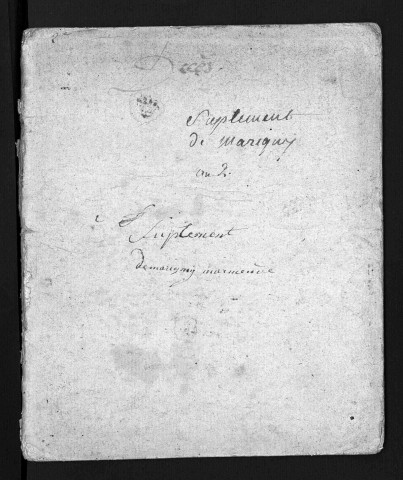 Décès
Suplement
de marigny
an 2.
Suplement
de marigny marmande